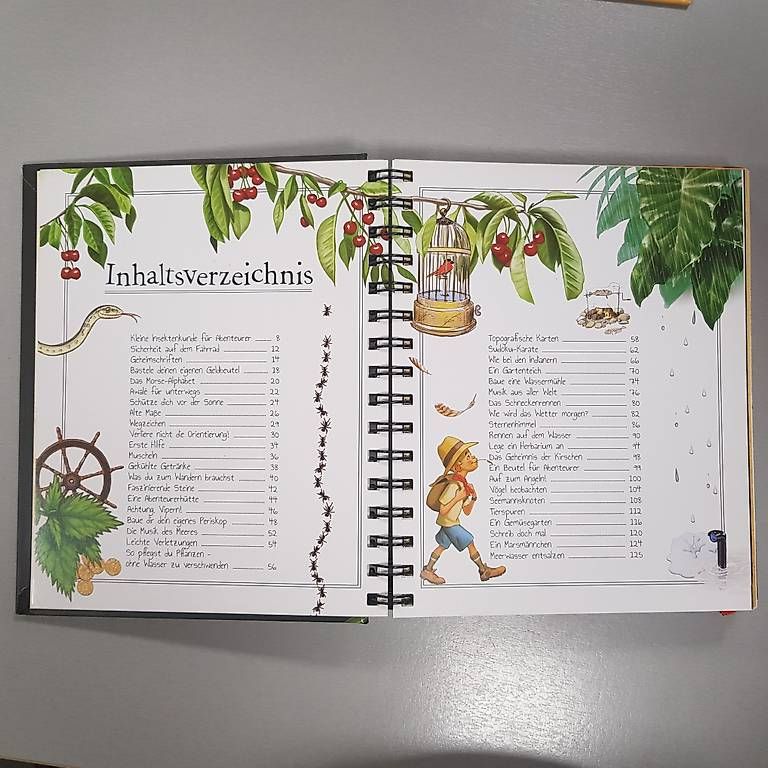 Inhaltsverzeichnis
Kleine Insektenkunde für Abenteurer 8
Sicherheit auf dem Fahrrad 12
Geheimschriften 14
Bastele deinen eigenen Geldbeutel 18
Das Morse-Alphabet 20
Awalé für unterwegs 22
Schütze dich vor der Sonne 24
Alte Maße 26
Wegzeichen 29
Verliere nicht die Orientierung! 30
Erste Hilfe 34
Muscheln 36
Gekühlte Getränke 38
Was du zum Wandern brauchst 40
Faszinierende Steine 42
Eine Abenteurerhütte 44
Achtung, Vipern! 46
Baue dir dein eigenes Periskop 48
Die Musik des Meeres 52
Leichte Verletzungen 54
So pflegst du Pflanzen –
ohne Wasser zu verschwenden 56
Topografische Karten 58
Sudoku-Karate 62
Wie bei den Indianern 66
Ein Gartenteich 70
Baue eine Wassermühle 74
Musik aus aller Welt 76
Das Schneckenrennen 80
Wie wird das Wetter morgen? 82
Sternenhimmel 86
Rennen auf dem Wasser 90
Lege ein Herbarium an 94
Das Geheimnis der Kirschen 98
Ein Beutel für Abenteurer 99
Auf zum Angeln! 100
Vögel beobachten 104
Seemannsknoten 108
Tierspuren 112
Ein Gemüsegarten 116
Schreib doch mal 120
Ein Marsmännchen 124
Meerwasser entsalzen 125